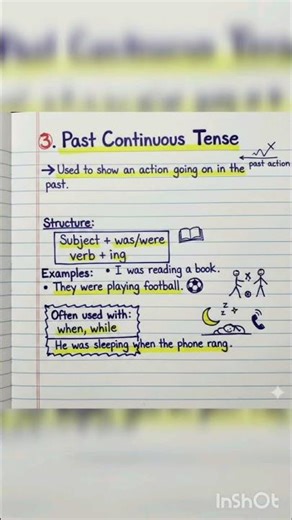 3. Past Continuous Tense
→ Used to show an action going on in the past.
past action
Structure:
Subject + was/were
verb + ing
Examples: • I was reading a book.
• They were playing football.
Often used with:
when, while
He was sleeping when the phone rang.
z z z
InShOt